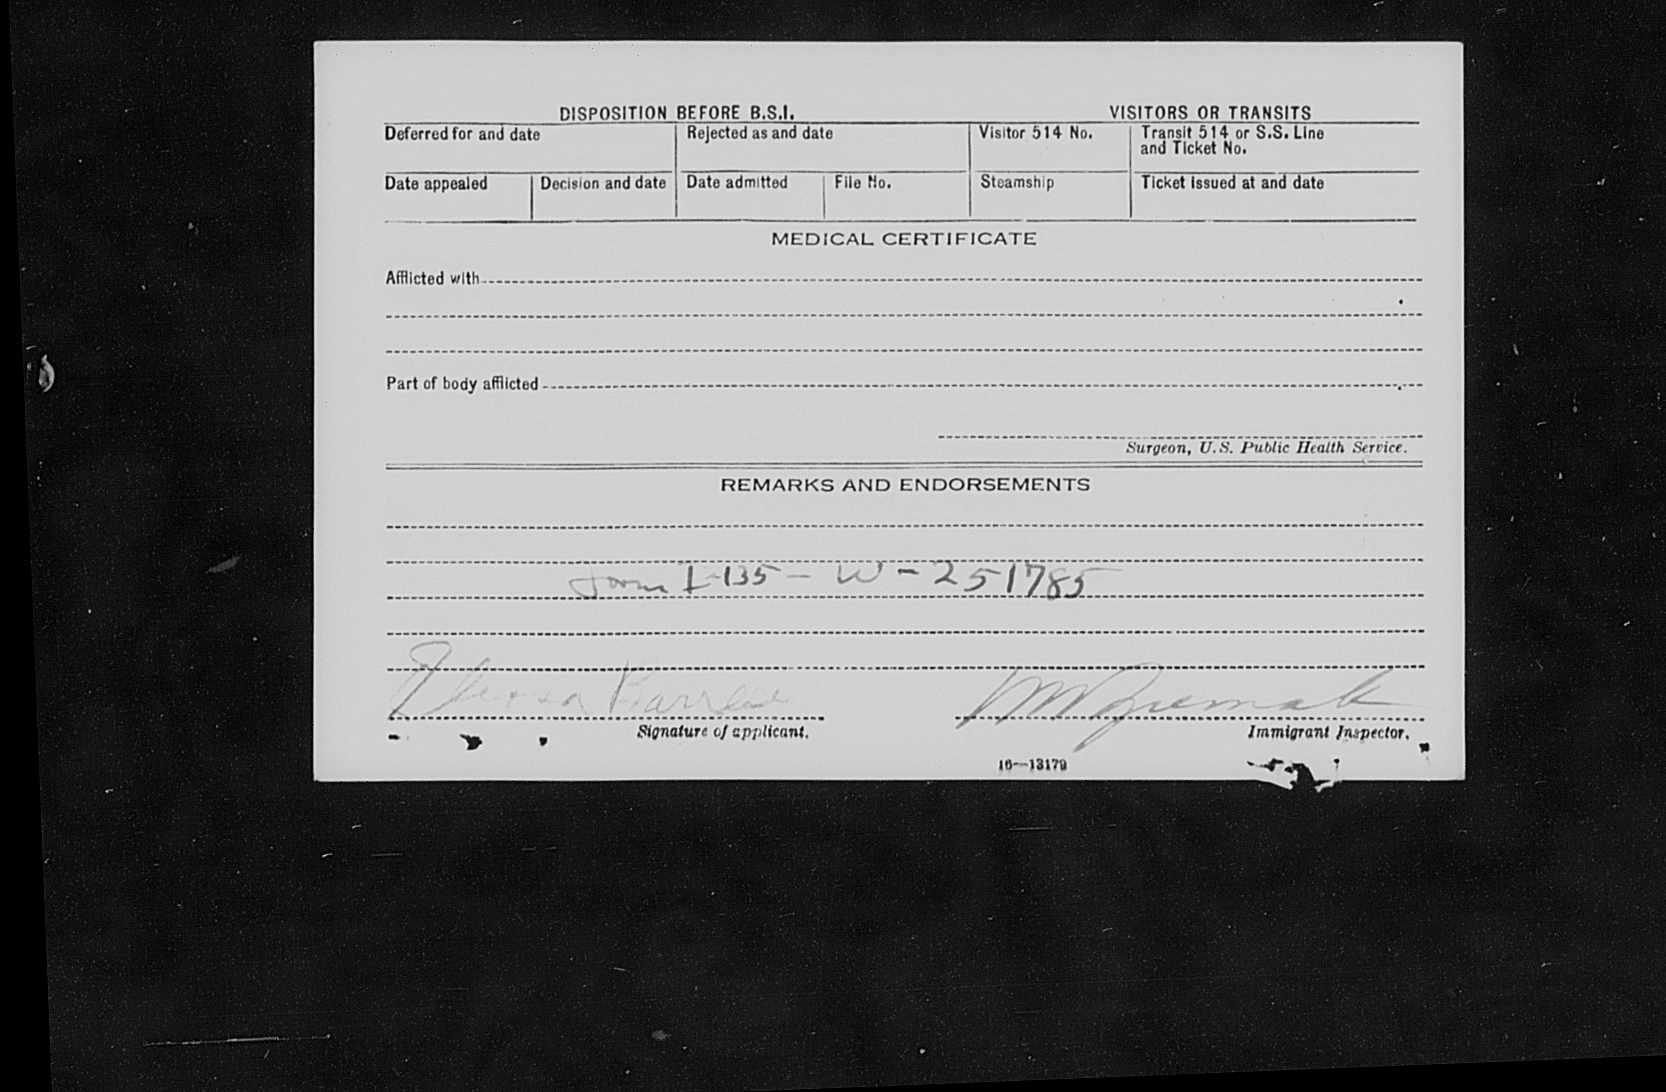 DISPOSITION BEFORE B.S.I. VISITORS OR TRANSITS
Deferred for and date Rejected as and date Visitor 514 No. Transit 514 or S.S. Line
and Ticket No.
Date appealed Decision and date Date admitted File No. Steamship Ticket issued at and date
MEDICAL CERTIFICATE
Afflicted with
Part of body afflicted
Surgeon, U.S. Public Health Service.
REMARKS AND ENDORSEMENTS
Form I-135 - W - 251785
Signature of applicant. Immigrant Inspector.
16—13179